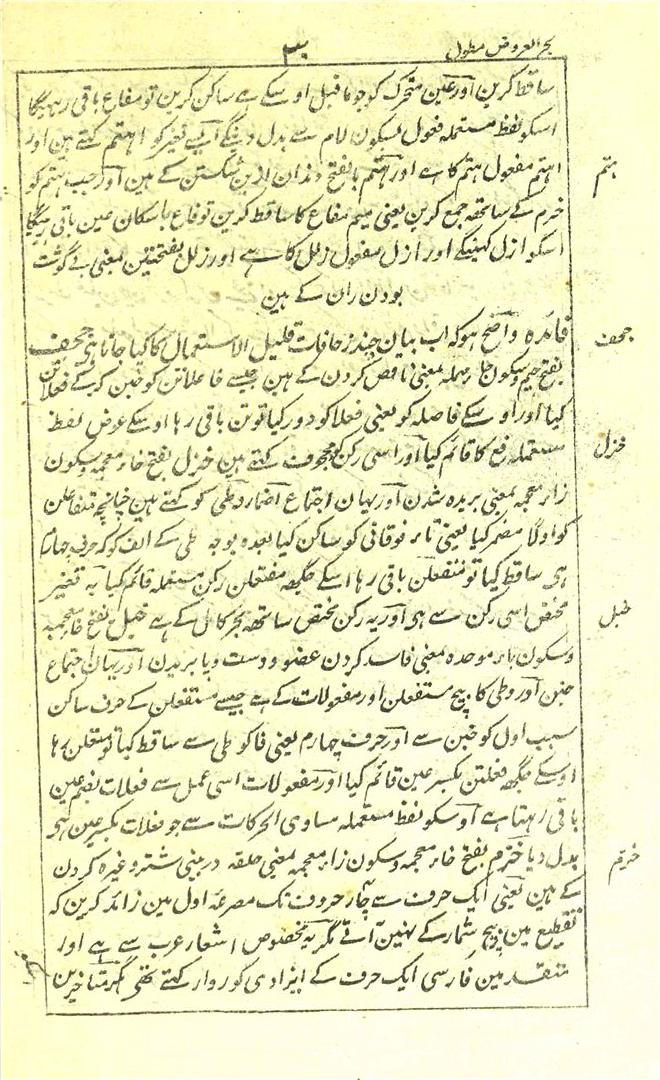 بحر العروض مطول
۳۰
ساقط کرین اور عین متحرک کو جو ماقبل اوسکے ہے ساکن کرین تو مفاع باقی رہیگا
اسکو لفظ مستعملہ فعول بسکون لام سے بدل دینگے ایسے تغیر کو اہتم کہتے ہین اور
اہتم مفعول ہتم کا ہے اور ہتم بالفتح دندان از بن شکستن کے ہین اور جب ہتم کو
ہتم
خرم کے ساتھہ جمع کرین یعنی میم مفاع کا ساقط کرین تو فاع باسکان عین باقی رہیگا
اسکو ازل کہینگے اور ازل مفعول زلل کا ہے اور زلل بفتحتین بمعنی بے گوشت
بودن ران کے ہین
فائدہ واضح ہو کہ اب بیان چند زحافات قلیل الاستعمال کا کیا جاتا ہی جحف
جحف
بفتح جیم و سکون حاء مہملہ بمعنی ناقص کردن کے ہین جیسے فاعلاتن کو خبن کرکے فعلاتن
کیا اور اوسکے فاصلہ کو یعنی فعلا کو دور کیا تو تن باقی رہا اوسکے عوض لفظ
مستعملہ فع کا قائم کیا اور اسی رکن کو مجحوف کہتے ہین خزل بفتح خاء معجمہ و سکون
خزل
زاء معجمہ بمعنی بریدہ شدن اور یہان اجتماع اضمار و طی کو کہتے ہین چنانچہ متفاعلن
کو اولا مضمر کیا یعنی تاء فوقانی کو ساکن کیا بعدہ بوجہ طی کے الف کو کہ حرف چہارم
ہی ساقط کیا تو متفعلن باقی رہا اسکے جگہہ مفتعلن رکن مستعملہ قائم کیا یہ تغیر
مختص اسی رکن سے ہی اور یہ رکن مختص ساتھہ بحر کامل کے ہے خبل بفتح خاء معجمہ
خبل
و سکون باء موحدہ بمعنی فاسد کردن عضو و دست و پا بریدن اور یہان اجتماع
خبن اور وطی کا بیچ مستفعلن اور مفعولات کے ہے جیسے مستفعلن کے حرف ساکن
سبب اول کو خبن سے اور حرف چہارم یعنی فا کو طی سے ساقط کیا تو متعلن رہا
اوسکے جگہہ فعلتن بکسر عین قائم کیا اور مفعولات اسی عمل سے فعلات بضم عین
باقی رہتا ہے اوسکو لفظ مستعملہ مساوی الحرکات سے جو فعلات بکسر عین ہی
بدل دیا خزم بفتح خاء معجمہ و سکون زاء معجمہ بمعنی حلقہ در بینی شتر وغیرہ کردن
خزم
کے ہین یعنی ایک حرف سے چار حروف تک مصرعہ اول مین زائد کرین کہ
تقطیع مین بیچ شمار کے نہین آتے مگر یہ مخصوص اشعار عرب سے ہے اور
متقدمین فارسی ایک حرف کے ایزادی کو روا رکہتے تھی مگر متاخرین